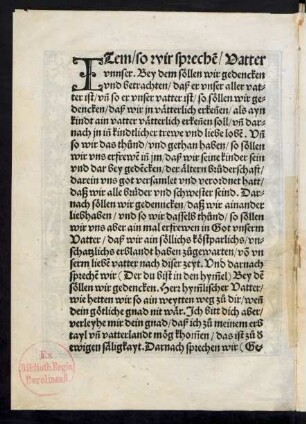 ITem/so wir sprechē/ Vatter
vnnser. Bey dem söllen wir gedencken
vnd betrachten/ daß er vnser aller vat-
ter ist/ vn̄ so er vnser vatter ist/ so söllen wir ge-
dencken/ daß wir in vätterlich erkeñen/ als ayn
kindt ain vatter vätterlich erkeñen soll/ vn̄ dar-
nach jn in kindtlicher trewe vnd liebe lobē. Vn̄
so wir das thünd/ vnd gethan haben/ so söllen
wir vns erfrewē in̄ jm/ daß wir seine kinder sein
vnd dar bey gedēcken/ der ältern brüderschafft/
darein vns got versamlet vnd verordnet hatt/
daß wir alle brüder vnd schwester seind. Dar-
nach söllen wir gedenncken/ daß wir ainander
liebhaben/ vnd so wir dasselb thünd/ so söllen
wir vns aber ain mal erfrewen in Got vnserm
Vatter/ daß wir ain söllichs köstparlichs/ vn-
schatzlichs erbland haben zügewarten/ vō vn
serm liebē vatter nach diser zeyt. Vnd darnach
sprechē wir (Der du bist in den hym̄el) Bey dē
söllen wir gedencken. Herr hym̄lischer Vatter/
wie hetten wir so ain weytten weg zü dir/ weñ
dein götliche gnad nit wär. Ich bitt dich aber/
verleyhe mir dein gnad/ daß ich zü meinem erb
tayl vn̄ vatterlandt mög khom̄en/ das ist zü d̄
ewigen säligkayt. Darnach sprechen wir (Ge-
Ex
Biblioth. Regia
Berolinensi